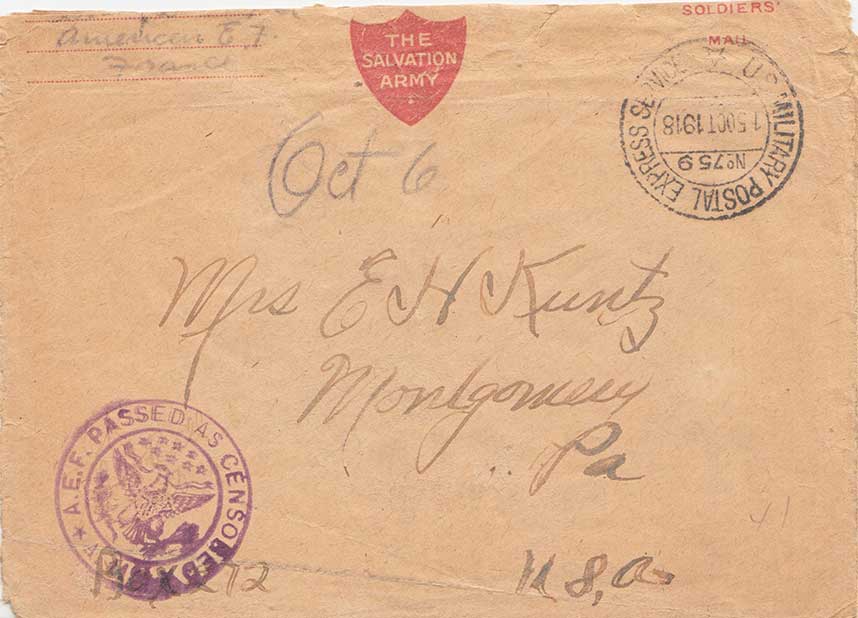 American E. F.
France
THE
SALVATION
ARMY
SOLDIERS'
MAIL
U.S. MILITARY POSTAL EXPRESS SERVICE
15 OCT 1918
No 759
Oct 6
Mrs E H Kuntz
Montgomery
Pa
A.E.F. PASSED AS CENSORED
Box 272
U.S.A.
41